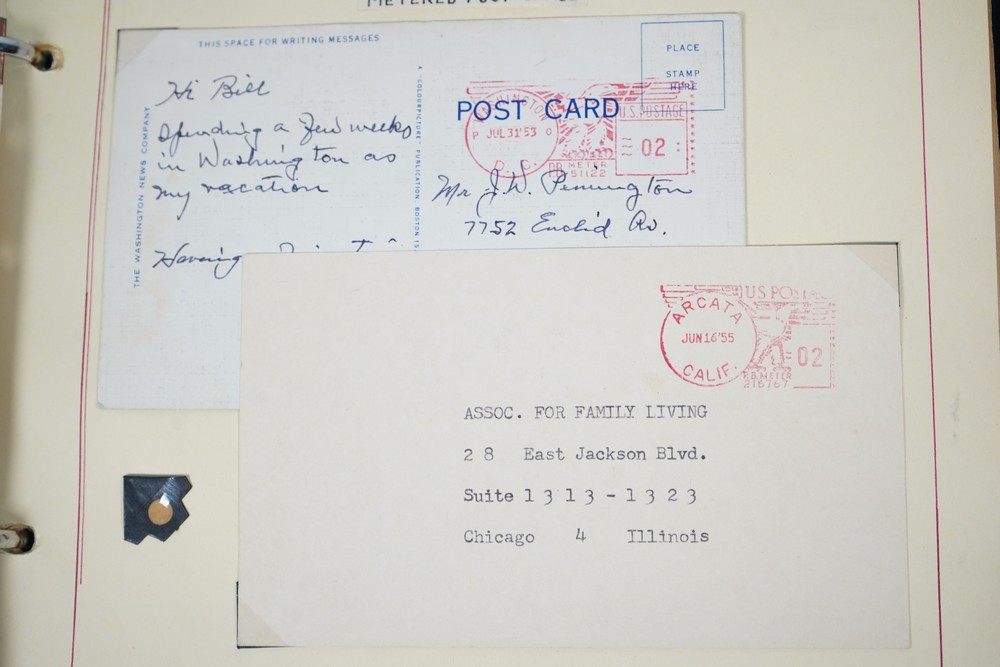 METERED POST
THIS SPACE FOR WRITING MESSAGES
THE WASHINGTON NEWS COMPANY
Hi Bill
Spending a few weeks
in Washington as
my vacation
Having
A "COLOURPICTURE" PUBLICATION, BOSTON 15
POST CARD
PLACE
STAMP
HERE
WASHINGTON
P JUL 31 '53 0
D. C.
U.S. POSTAGE
02
PB METER
51122
Mr J.W. Pennington
7752 Euclid Av.
US POSTAGE
ARCATA
JUN 16 '55
CALIF.
02
P.B. METER
216767
ASSOC. FOR FAMILY LIVING
28 East Jackson Blvd.
Suite 1313-1323
Chicago 4 Illinois